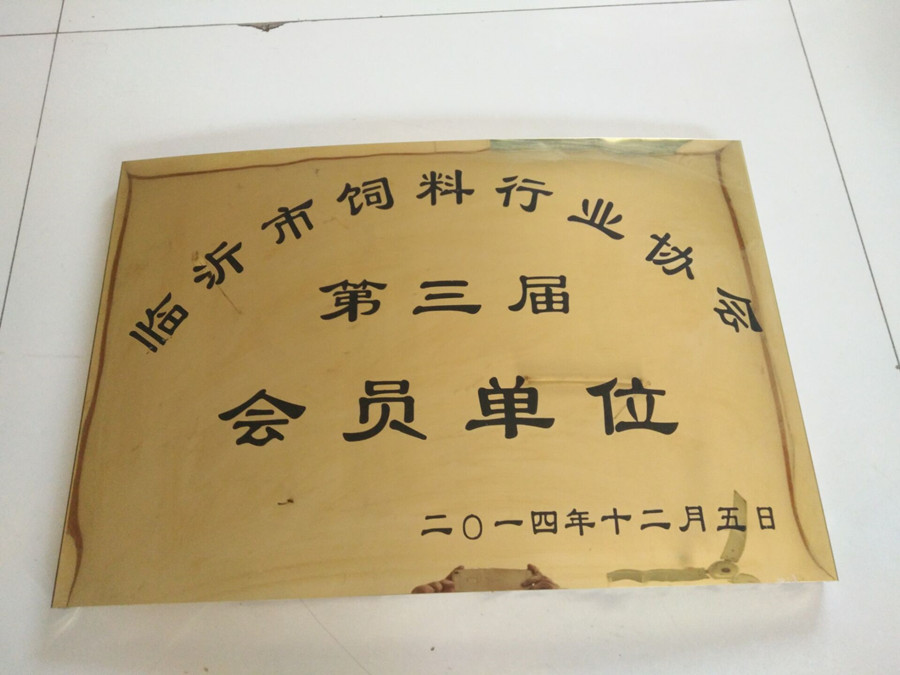 临沂市饲料行业协会
第三届
会员单位
二〇一四年十二月五日